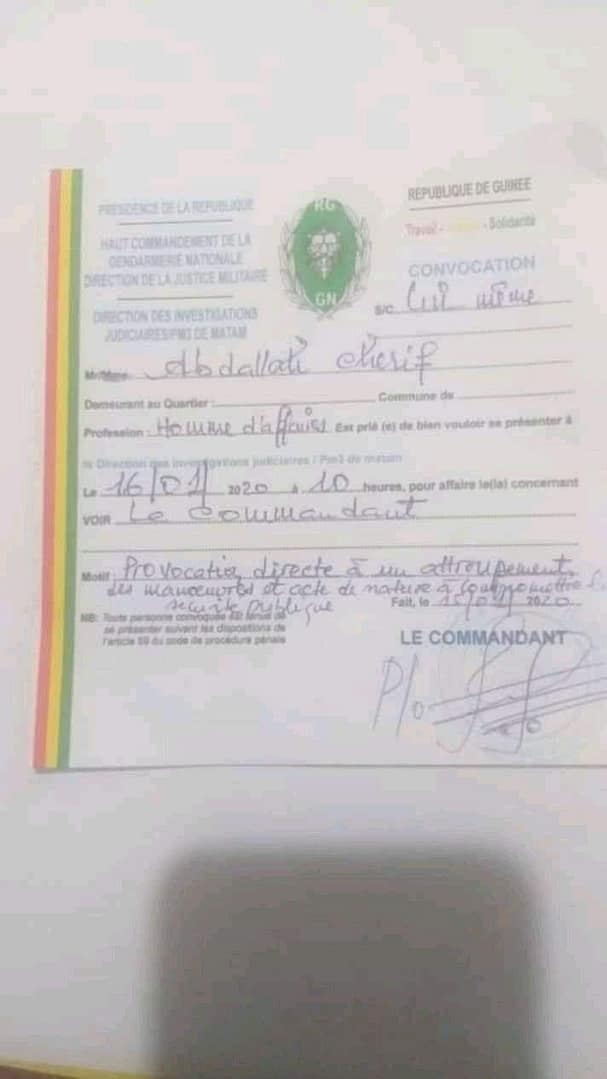 PRESIDENCE DE LA REPUBLIQUE
HAUT COMMANDEMENT DE LA
GENDARMERIE NATIONALE
DIRECTION DE LA JUSTICE MILITAIRE
DIRECTION DES INVESTIGATIONS
JUDICIAIRES/PM3 DE MATAM
RG
GN
REPUBLIQUE DE GUINEE
Travail - - Solidarité
CONVOCATION
S/C. Lui même
Mr/Mme Abdallah Chérif
Demeurant au Quartier : Commune de
Profession : Homme d'affaires Est prié (e) de bien vouloir se présenter à
la Direction des investigations judiciaires / Pm3 de matam
Le 16/01/ 2020 à 10 heures, pour affaire le(la) concernant
VOIR Le Commandant
Motif : Provocation directe à un attroupement,
des manoeuvres et acte de nature à compromettre
sécurité publique
Fait, le 15/01/ 2020
NB: Toute personne convoquée est tenue de
se présenter suivant les dispositions de
l'article 59 du code de procédure pénale
LE COMMANDANT
P/o